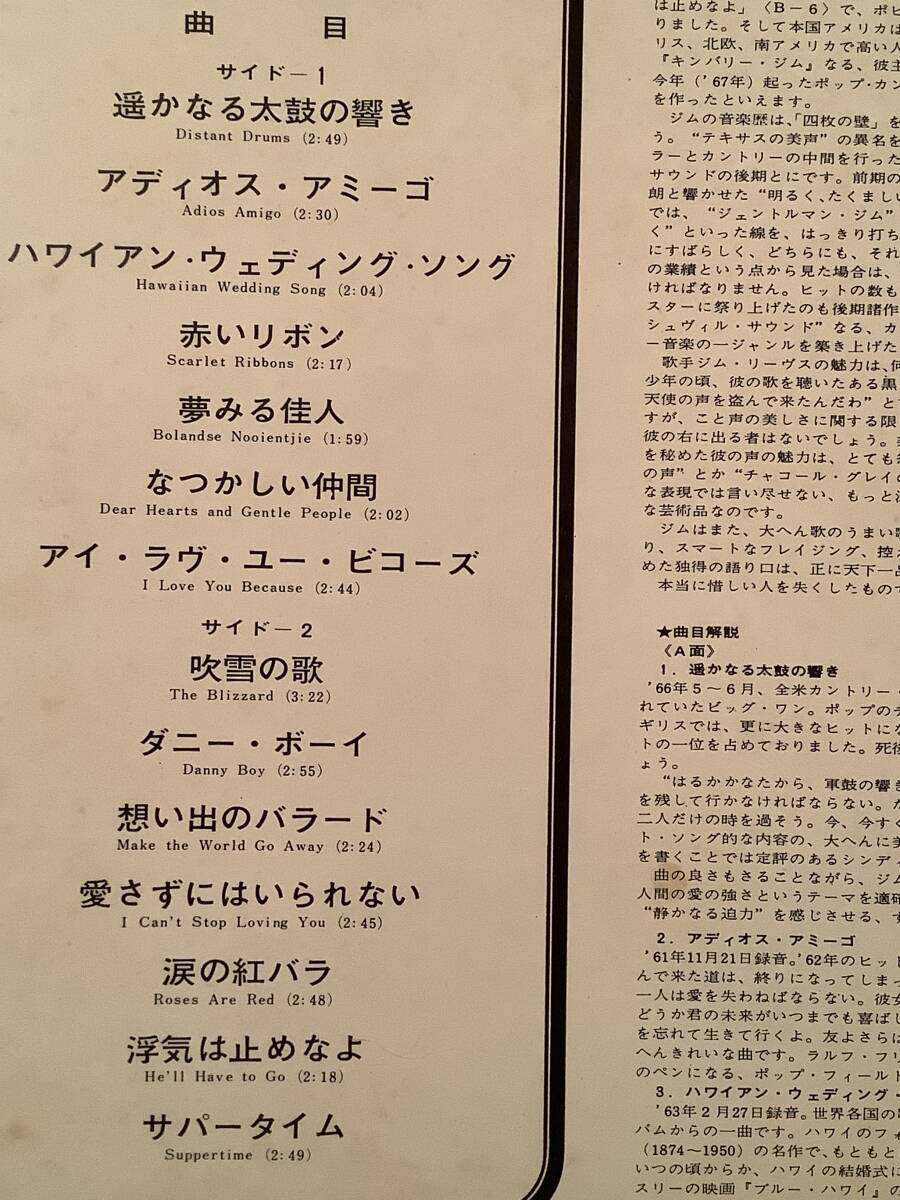 曲 目
サイド－1
遥かなる太鼓の響き
Distant Drums (2:49)
アディオス・アミーゴ
Adios Amigo (2:30)
ハワイアン・ウェディング・ソング
Hawaiian Wedding Song (2:04)
赤いリボン
Scarlet Ribbons (2:17)
夢みる佳人
Bolandse Nooientjie (1:59)
なつかしい仲間
Dear Hearts and Gentle People (2:02)
アイ・ラヴ・ユー・ビコーズ
I Love You Because (2:44)
サイド－2
吹雪の歌
The Blizzard (3:22)
ダニー・ボーイ
Danny Boy (2:55)
想い出のバラード
Make the World Go Away (2:24)
愛さずにはいられない
I Can't Stop Loving You (2:45)
涙の紅バラ
Roses Are Red (2:48)
浮気は止めなよ
He'll Have to Go (2:18)
サパータイム
Suppertime (2:49)
は止めなよ」〈B－6〉で、ポピ
りました。そして本国アメリカは
リス、北欧、南アメリカで高い人
『キンバリー・ジム』なる、彼主
今年（'67年）起ったポップ・カン
を作ったといえます。
ジムの音楽歴は、「四枚の壁」を
う。“テキサスの美声”の異名を
ラーとカントリーの中間を行った
サウンドの後期とにです。前期の
朗と響かせた“明るく、たくまし
では、“ジェントルマン・ジム”
く”といった線を、はっきり打ち
にすばらしく、どちらにも、それ
の業績という点から見た場合は、
ければなりません。ヒットの数も
スターに祭り上げたのも後期諸作
シュヴィル・サウンド”なる、カ
ー音楽の一ジャンルを築き上げた
歌手ジム・リーヴスの魅力は、何
少年の頃、彼の歌を聴いたある黒
天使の声を盗んで来たんだわ”と
すが、こと声の美しさに関する限
彼の右に出る者はないでしょう。
を秘めた彼の声の魅力は、とても
の声”とか“チャコール・グレイの
な表現では言い尽せない、もっと
な芸術品なのです。
ジムはまた、大へん歌のうまい
り、スマートなフレイジング、控
めた独得の語り口は、正に天下一品
本当に惜しい人を失くしたもので
★曲目解説
《A面》
1．遥かなる太鼓の響き
'66年5～6月、全米カントリー・
れていたビッグ・ワン。ポップの
ギリスでは、更に大きなヒットにな
トの一位を占めておりました。死後
ょう。
“はるかかなたから、軍鼓の響き
を残して行かなければならない。
二人だけの時を過そう。今、今すぐ
ト・ソング的な内容の、大へんに美
を書くことでは定評のあるシンディ
曲の良さもさることながら、ジム
人間の愛の強さというテーマを適確
“静かなる迫力”を感じさせる、
2．アディオス・アミーゴ
'61年11月21日録音。'62年のヒット
んで来た道は、終りになってしまっ
一人は愛を失わねばならない。彼女
どうか君の未来がいつまでも喜ばし
を忘れて生きて行くよ。友よさらば
へんきれいな曲です。ラルフ・フリ
のペンになる、ポップ・フィールド
3．ハワイアン・ウェディング・
'63年2月27日録音。世界各国の
バムからの一曲です。ハワイのフォ
（1874～1950）の名作で、もともと
いつの頃からか、ハワイの結婚式に
スリーの映画『ブルー・ハワイ』の